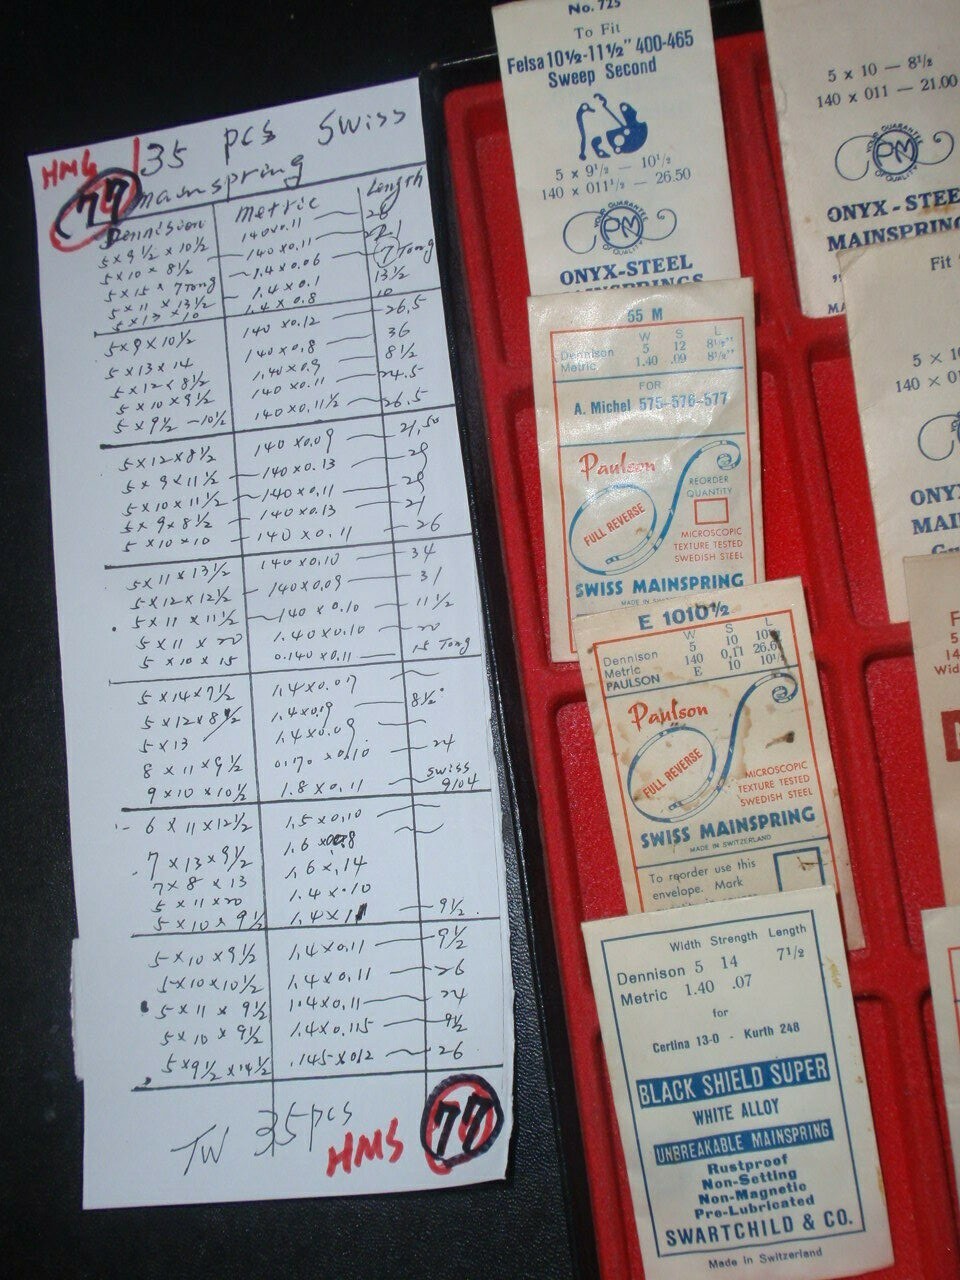 HMG 135 pcs Swiss
77 mainspring
Dennision Metric Length
5 x 9 1/2 x 10 1/2 140x0.11 28
5 x 10 x 8 1/2 140 x 0.11
5 x 15 x 7 Tong 1.4 x 0.06 7 Tong
5 x 11 x 13 1/2 1.4 x 0.1 13 1/2
5 x 13 x 10 1.4 x 0.8 10
5 x 9 x 10 1/2 140 x 0.12 26.5
5 x 13 x 14 140 x 0.8 36
5 x 12 x 8 1/2 1.40 x 0.9 8 1/2
5 x 10 x 9 1/2 140 x 0.11 24.5
5 x 9 1/2 - 10 1/2 140 x 0.11 1/2 26.5
5 x 12 x 8 1/2 140 x 0.09 21,50
5 x 9 x 11 1/2 140 x 0.13 28
5 x 10 x 11 1/2 140 x 0.11 28
5 x 9 x 8 1/2 140 x 0.13 21
5 x 10 x 10 140 x 0.11 26
5 x 11 x 13 1/2 140 x 0.10 34
5 x 12 x 12 1/2 140 x 0.09 31
5 x 11 x 11 1/2 140 x 0.10 11 1/2
5 x 11 x 20 1.40 x 0.10 20
5 x 10 x 15 0.140 x 0.11 15 Tong
5 x 14 x 7 1/2 1.4 x 0.07
5 x 12 x 8 1/2 1.4 x 0.9 8 1/2"
5 x 13 1.4 x 0.09
8 x 11 x 9 1/2 0.170 x 0.10 24
9 x 10 x 10 1/2 1.8 x 0.11 Swiss 9104
6 x 11 x 12 1/2 1.5 x 0.10
7 x 13 x 9 1/2 1.6 x 0.8
7 x 8 x 13 1.6 x .14
5 x 11 x 20 1.4 x .10
5 x 10 x 9 1/2 1.4 x 9 1/2
5 x 10 x 9 1/2 1.4 x 0.11 9 1/2
5 x 10 x 10 1/2 1.4 x 0.11 26
5 x 11 x 9 1/2 1.4 x 0.11 24
5 x 10 x 9 1/2 1.4 x 0.115 9 1/2
5 x 9 1/2 x 14 1/2 .145 x 012 26
TW 35 pcs
HMS 77
No. 725
To Fit
Felsa 10½-11½" 400-465
Sweep Second
5 x 9½ — 10½
140 x 011½ — 26.50
YOUR GUARANTEE
PM
OF QUALITY
ONYX-STEEL
MAINSPRINGS
55 M
W S L
Dennison 5 12 8½"
Metric 1.40 .09 8½"
FOR
A. Michel 575-576-577
Paulson
REORDER
QUANTITY
FULL REVERSE
MICROSCOPIC
TEXTURE TESTED
SWEDISH STEEL
SWISS MAINSPRING
MADE IN
E 1010½
W S L
Dennison 5 10 10½
Metric 140 0,11 26,6
PAULSON E 10 10½
Paulson
FULL REVERSE
MICROSCOPIC
TEXTURE TESTED
SWEDISH STEEL
SWISS MAINSPRING
MADE IN SWITZERLAND
To reorder use this
envelope. Mark
Width Strength Length
Dennison 5 14 7½
Metric 1.40 .07
for
Certina 13-0 - Kurth 248
BLACK SHIELD SUPER
WHITE ALLOY
UNBREAKABLE MAINSPRING
Rustproof
Non-Setting
Non-Magnetic
Pre-Lubricated
SWARTCHILD & CO.
Made in Switzerland
5 x 10 — 8½
140 x 011 — 21.00
YOUR GUARANTEE
PM
OF QUALITY
ONYX-STEE
MAINSPRIN
Fit
5 x 10
140 x 01
ONY
MAI